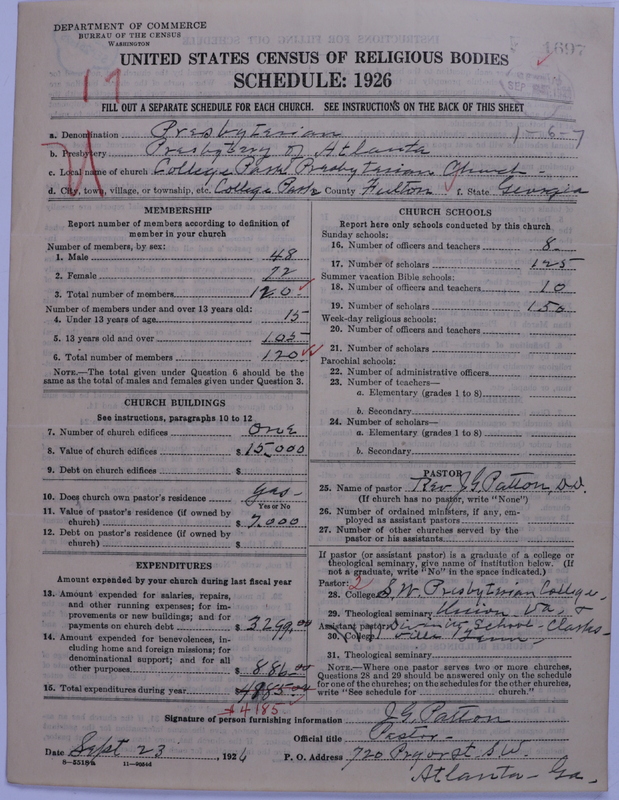 DEPARTMENT OF COMMERCE
BUREAU OF THE CENSUS
WASHINGTON
1697
UNITED STATES CENSUS OF RELIGIOUS BODIES
SCHEDULE: 1926
17
SEP
FILL OUT A SEPARATE SCHEDULE FOR EACH CHURCH. SEE INSTRUCTIONS ON THE BACK OF THIS SHEET
a. Denomination Presbyterian 1-6-7
b. Presbytery Presbytery of Atlanta
c. Local name of church College Park Presbyterian Church
d. City, town, village, or township, etc. College Park County Fulton f. State Georgia
MEMBERSHIP
Report number of members according to definition of
member in your church
Number of members, by sex:
1. Male 48
2. Female 72
3. Total number of members 120
Number of members under and over 13 years old:
4. Under 13 years of age 15
5. 13 years old and over 105
6. Total number of members 120
NOTE.—The total given under Question 6 should be
same as the total of males and females given under Question 3.
CHURCH BUILDINGS
See instructions, paragraphs 10 to 12
7. Number of church edifices One
8. Value of church edifices $ 15,000
9. Debt on church edifices $
10. Does church own pastor's residence Yes
Yes or No
11. Value of pastor's residence (if owned by
church) $ 7,000
12. Debt on pastor's residence (if owned by
church) $
EXPENDITURES
Amount expended by church during last fiscal year
13. Amount expended for salaries, repairs,
and other running expenses; for im-
provements or new buildings; and for
payments on church debt $ 3299.00
14. Amount expended for benevolences, in-
cluding home and foreign missions; for
denominational support; and for all
other purposes $ 886.00
15. Total expenditures during year $ 4885.00
$4185
CHURCH SCHOOLS
Report here only schools conducted by this church
Sunday schools:
16. Number of officers and teachers 8
17. Number of scholars 125
Summer vacation Bible schools:
18. Number of officers and teachers 10
19. Number of scholars 150
Week-day religious schools:
20. Number of officers and teachers
21. Number of scholars
Parochial schools:
22. Number of administrative officers
23. Number of teachers—
a. Elementary (grades 1 to 8)
b. Secondary
24. Number of scholars—
a. Elementary (grades 1 to 8)
b. Secondary
PASTOR
25. Name of pastor Rev. J.G. Patton, D.D.
(If church has no pastor, write "None")
26. Number of ordained ministers, if any, em-
ployed as assistant pastors
27. Number of other churches served by the
pastor or his assistants
If pastor (or assistant pastor) is a graduate of a college or
theological seminary, give name of institution below. (If
not a graduate, write "No" in the space indicated.)
Pastor: 2
28. College S.W. Presbyterian College
29. Theological seminary Union Va. &
Assistant pastor: Divinity School - Clarks-
30. College ville Tenn
31. Theological seminary
NOTE.—Where one pastor serves two or more churches,
Questions 28 and 29 should be answered only on the schedule
for one of the churches; on the schedules for the other churches,
write "See schedule for church."
Signature of person furnishing information J.G. Patton
Official title Pastor
Date Sept 23, 1926 P. O. Address 720 Pryor St S.W.
8-5518a 11-
Atlanta - Ga.